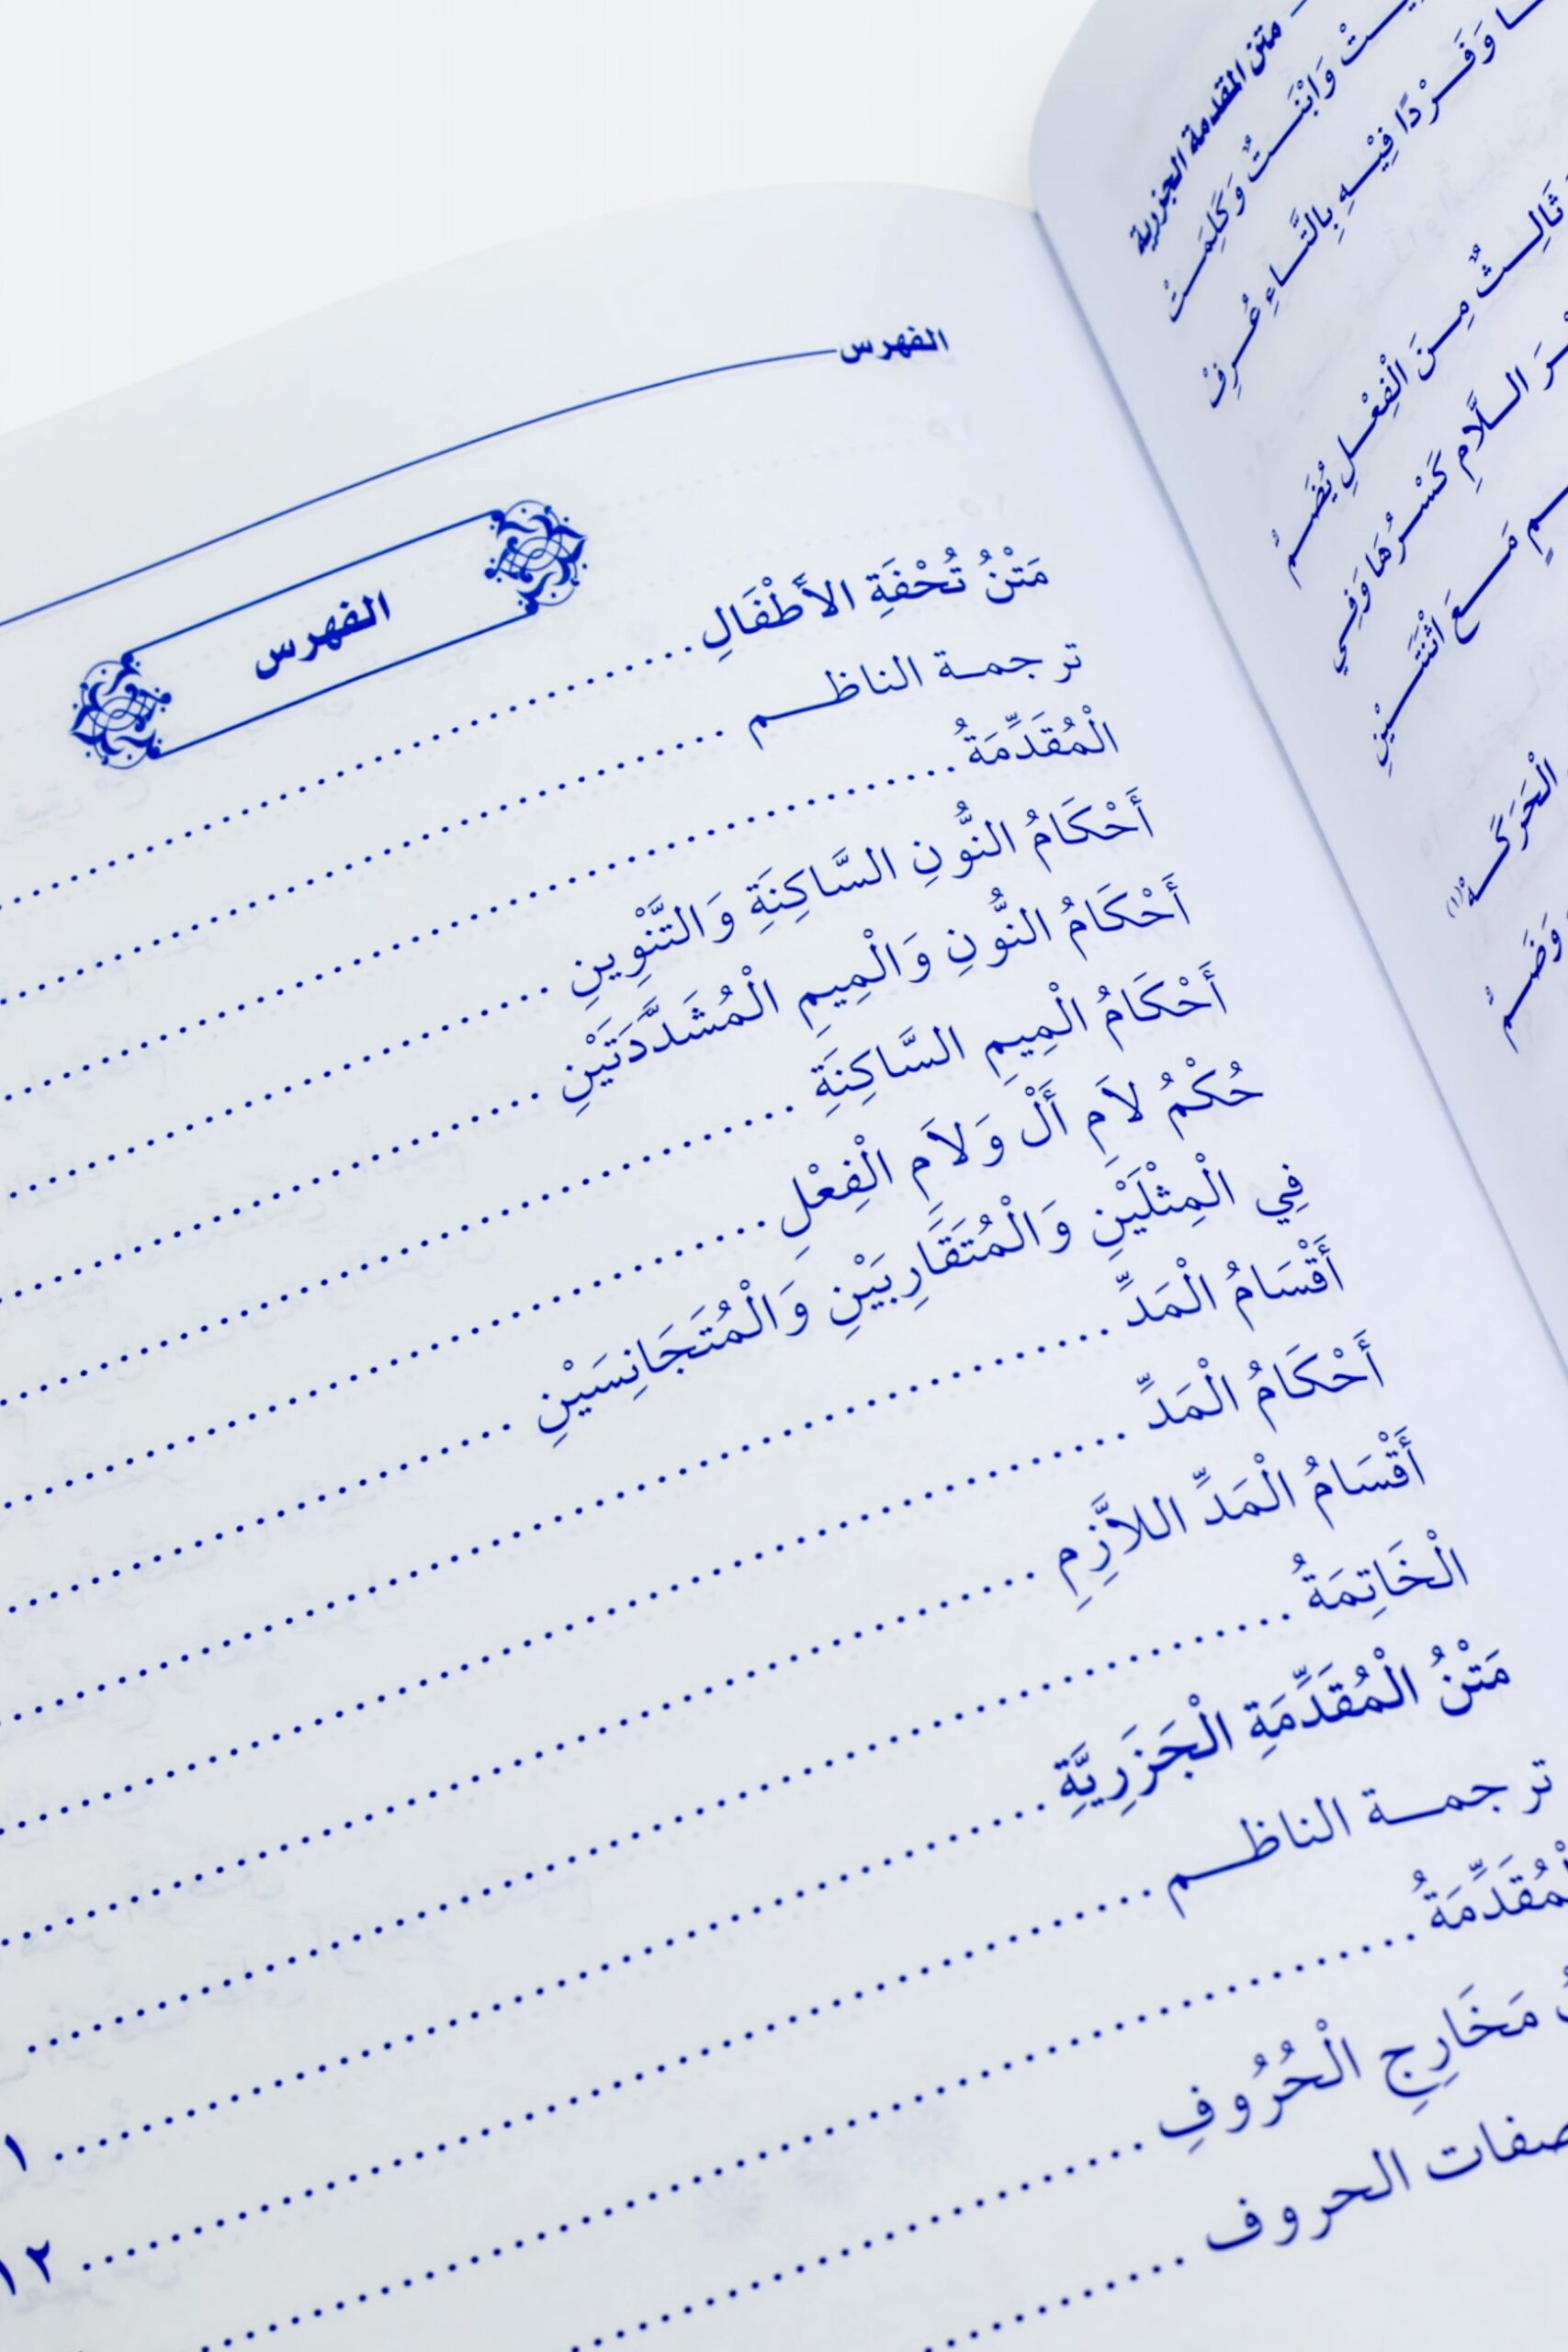 متن المقدمة الجزرية
وَابْنَـــتٌ وَكَلِمَـــتْ
وَفَـــرْدًا فِيْـــهِ بِالتَّـــاءِ عُـــرِفْ
ثَالِـــثٌ مِـــنَ الْفِعْـــلِ يُضَـــمُّ
الـــلَّامِ كَسْـــرُهَا وَفِـــي
مَـــعَ اثْنَتَـــيْنِ
الْحَرَكَـــهْ(١)
وَضَـــمُّ
الفهرس
الفهرس
مَتْنُ تُحْفَةِ الأَطْفَالِ
ترجمـة الناظـــم
الْمُقَدِّمَةُ
أَحْكَامُ النُّونِ السَّاكِنَةِ وَالتَّنْوِينِ
أَحْكَامُ النُّونِ وَالْمِيمِ الْمُشَدَّدَتَيْنِ
أَحْكَامُ الْمِيمِ السَّاكِنَةِ
حُكْمُ لاَمِ أَلْ وَلاَمِ الْفِعْلِ
فِي الْمِثْلَيْنِ وَالْمُتَقَارِبَيْنِ وَالْمُتَجَانِسَيْنِ
أَقْسَامُ الْمَدِّ
أَحْكَامُ الْمَدِّ
أَقْسَامُ الْمَدِّ اللاَّزِمِ
الْخَاتِمَةُ
مَتْنُ الْمُقَدِّمَةِ الْجَزَرِيَّةِ ١
ترجمـــة الناظـــم ١٢
الْمُقَدِّمَةُ
مَخَارِجِ الْحُرُوفِ
صفات الحروف